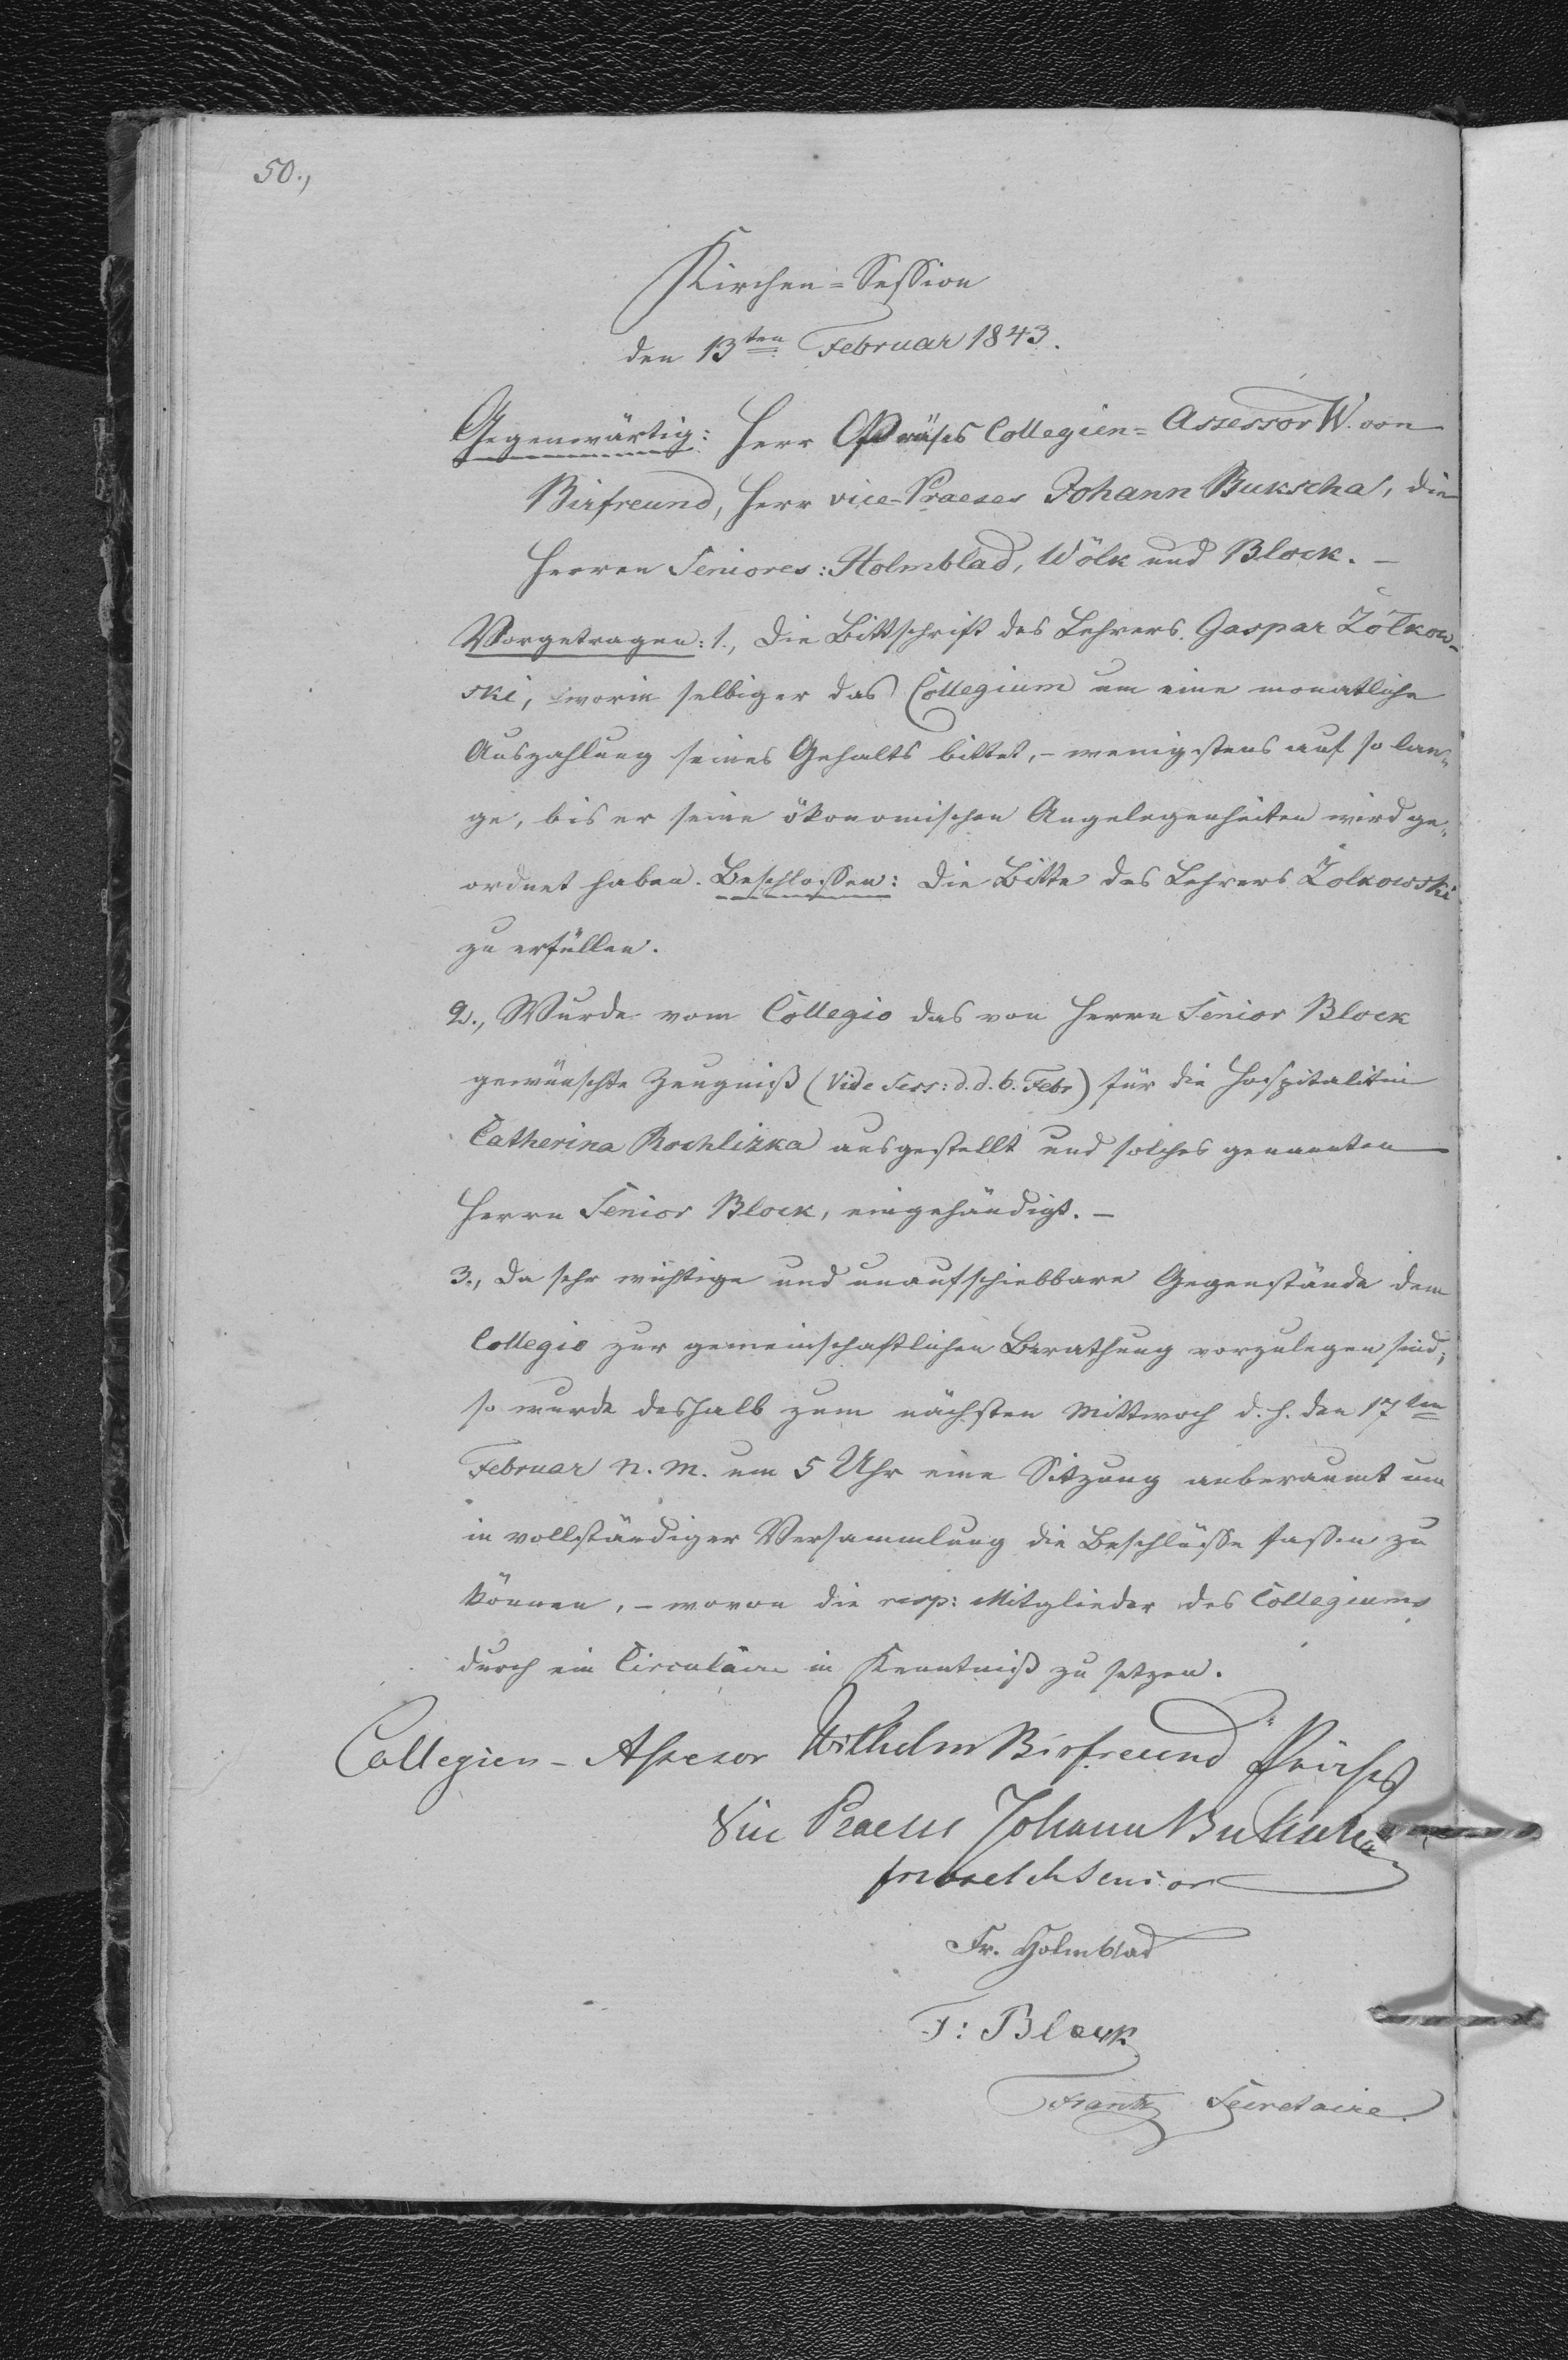 50.,
Kirchen=Session
den 13ten Februar 1843.
Gegenwärtig: Herr Präses Collegien=Assessor W. von
Birfreund, Herr vice-Praeses Johann Bukscha, die
Herren Seniores: Holmblad, Wölk und Block. –
Vorgetragen: 1., Die Bittschrift des Lehrers Gaspar Żółkow-
ski, worin selbiger das Collegium um eine monatliche
Auszahlung seines Gehalts bittet, – wenigstens auf so lan„
ge, bis er seine ökonomischen Angelegenheiten wird ge„
ordnet haben. Beschlossen: Die Bitte des Lehrers Żolkowski
zu erfüllen.
2., Wurde vom Collegio das von Herrn Senior Block
gewünschte Zeugniß (Vide Sess: d. d. 6. Febr) für die Hospitalitin
Catherina Rochlizka ausgestellt und solches genannten
Herrn Senior Block, eingehändigt. –
3., Da sehr wichtige und unaufschiebbare Gegenstände dem
Collegio zur gemeinschaftlichen Berathung vorzulegen sind;
so wurde deshalb zum nächsten Mittwoch d. h. den 17ten
Februar N. M. um 5 Uhr eine Sitzung anberaumt um
in vollständiger Versammlung die Beschlüsse fassen zu
können, – wovon die resp: Mitglieder des Collegiums
durch ein Circulaire in Kenntniß zu setzen.
Collegien-Assesor Wilhelm Birfreund Präses
Vice Praeses Johann Bukscha
Senior
Fr. Holmblad
F: Block
Frantz Secretaire.